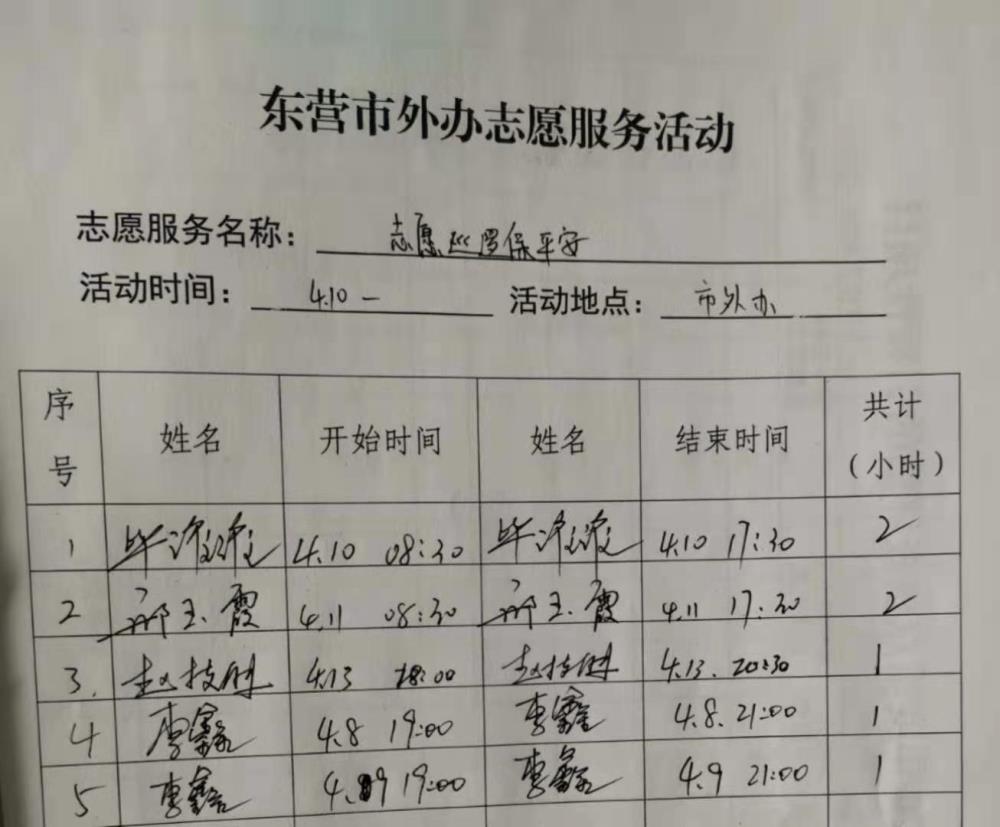 东营市外办志愿服务活动
志愿服务名称：志愿巡逻保平安
活动时间：4.10 — 活动地点：市外办
序号 姓名 开始时间 姓名 结束时间 共计（小时）
1 4.10 08:30 4.10 17:30 2
2 4.11 08:30 4.11 17:30 2
3. 4.13 18:00 4.13. 20:30 1
4 李鑫 4.8 19:00 李鑫 4.8. 21:00 1
5 李鑫 4.9 19:00 李鑫 4.9 21:00 1